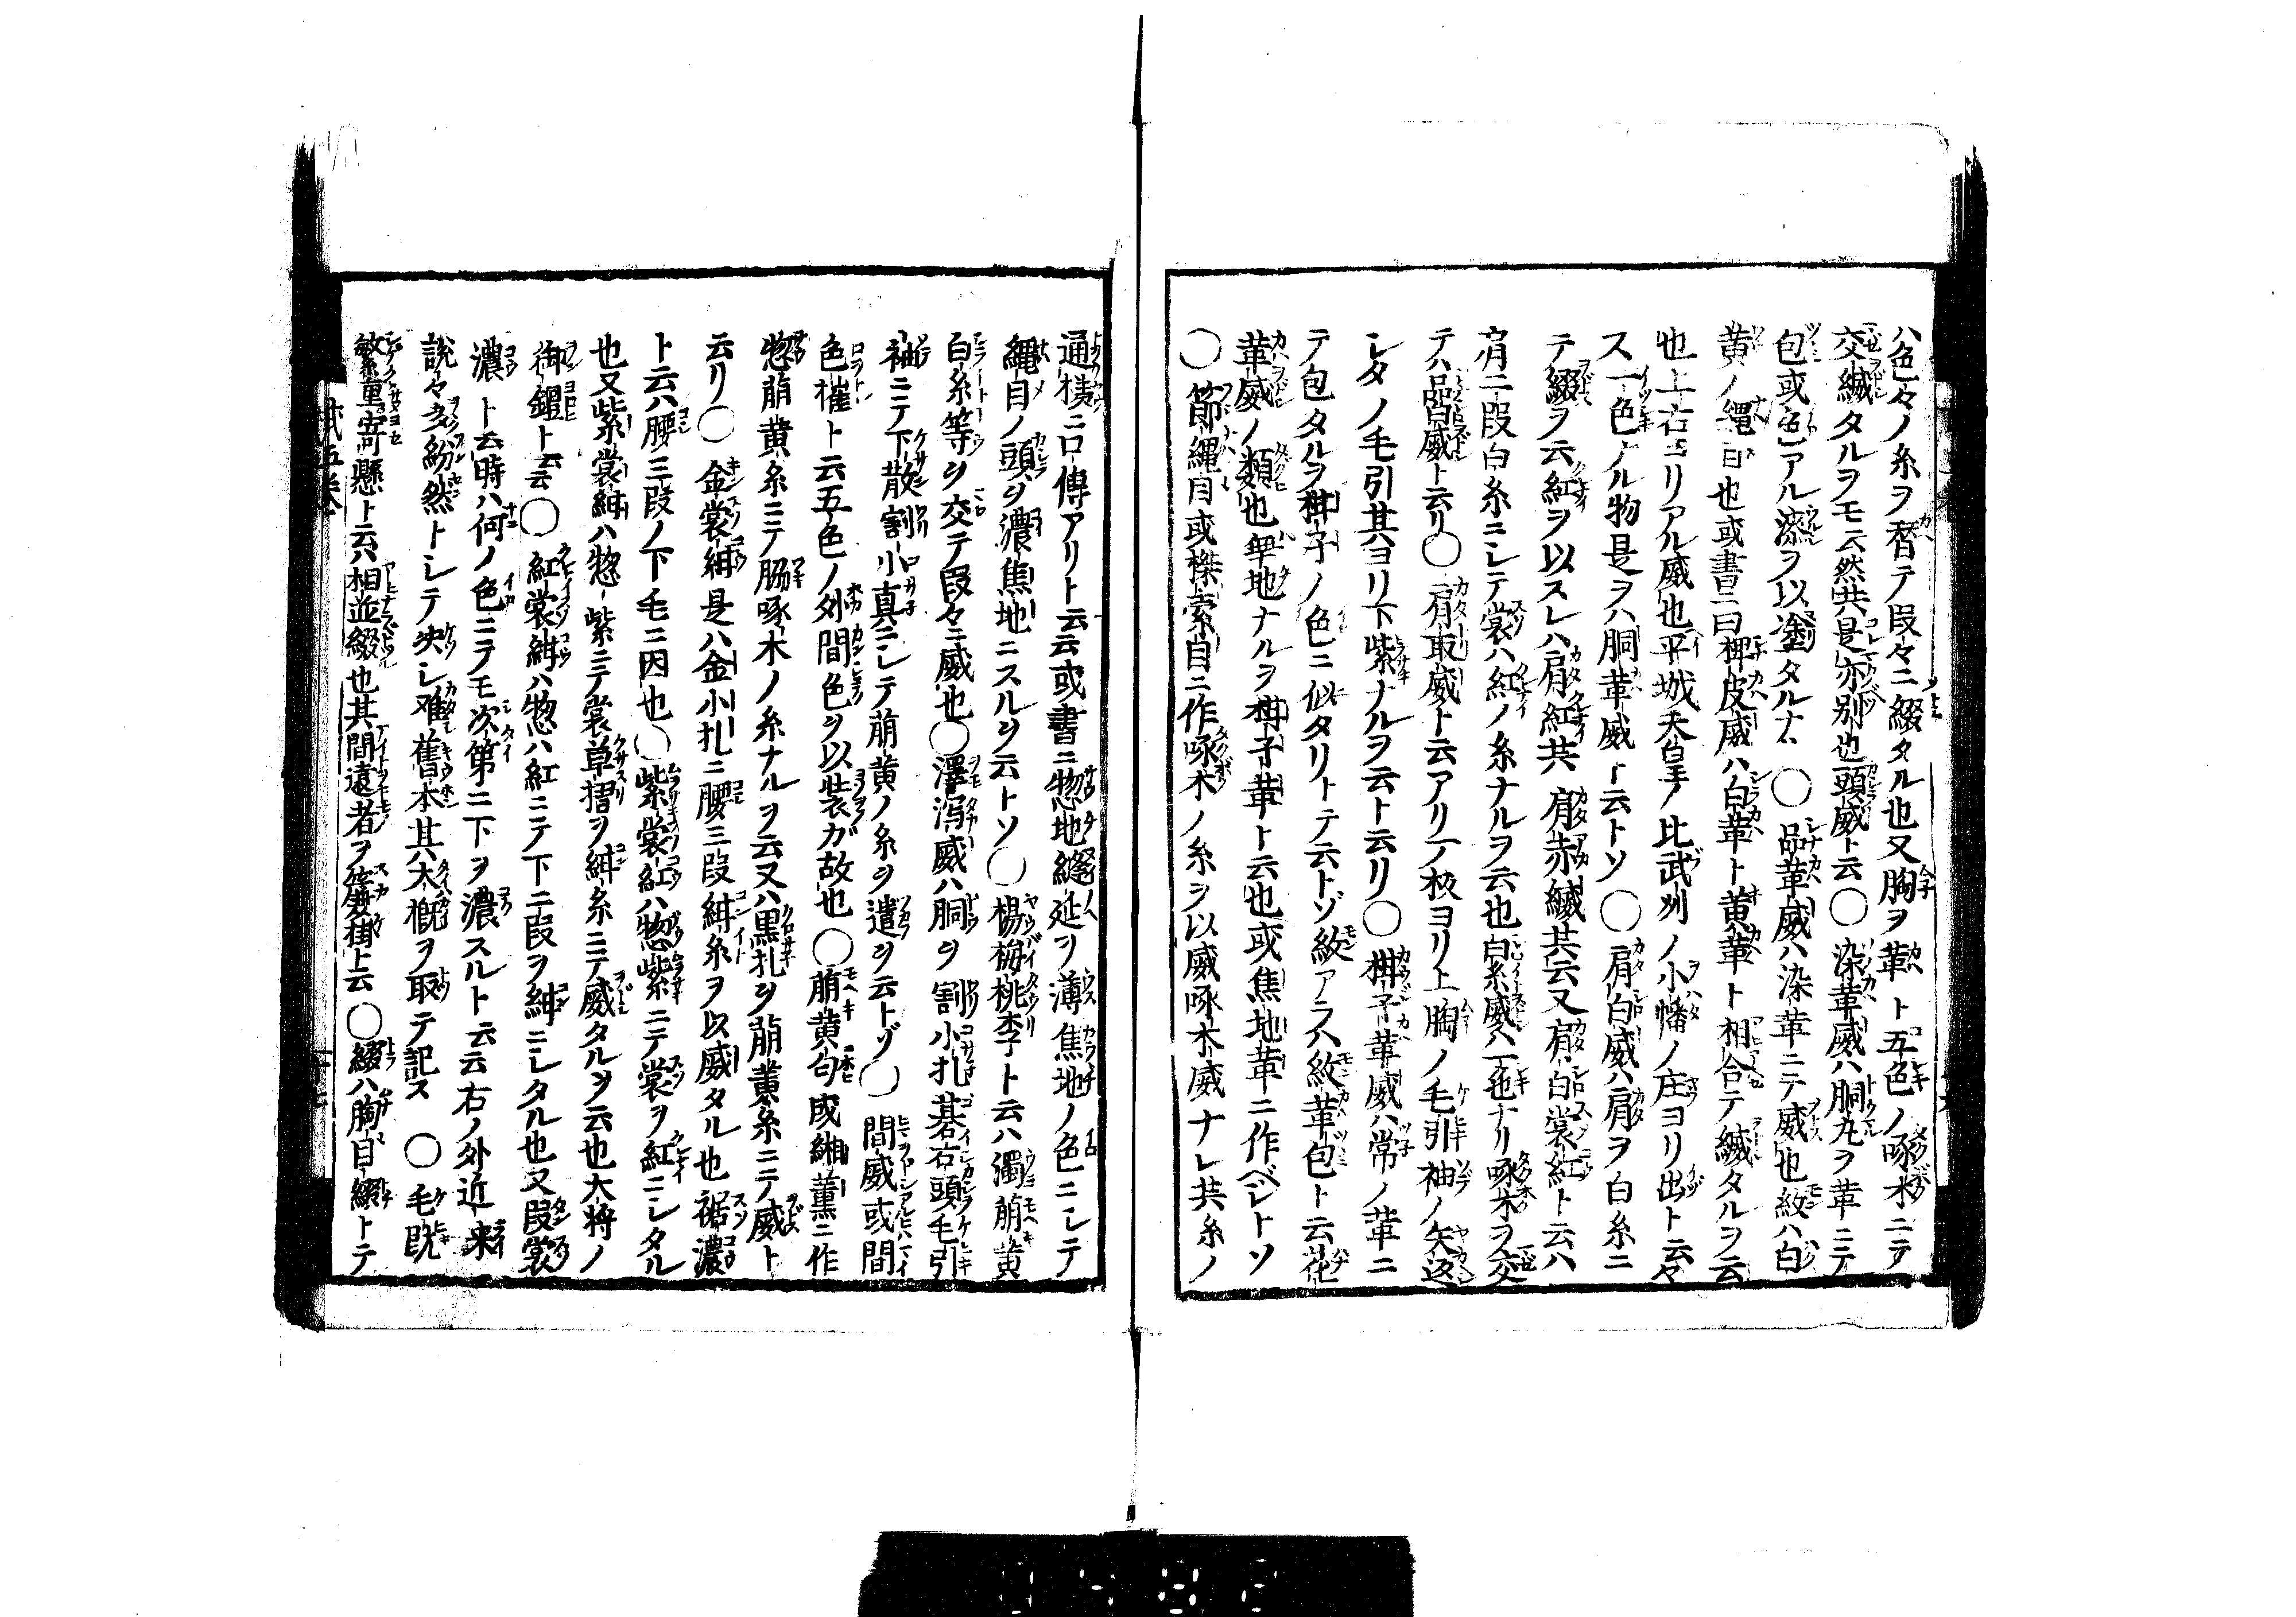 ハ色々ノ糸ヲ替テ段々ニ綴タル也又胸ヲ革ト五色ノ啄木ニテ
交縅タルヲモ云然共是亦別也頭威ト云〇染革威ハ胴丸ヲ革ニテ
包或色アル漆ヲ以塗タルナ〇品革威ハ染革ニテ威也紋ハ白
黄ノ縄目也或書ニ曰椑皮威ハ白革ト黄革ト相合テ縅タルヲ云
也上古ヨリアル威也平城天皇ノ比武州ノ小幡ノ庄ヨリ出ト云々
ス一色ノル物是ヲハ胴革威ト云トソ〇肩白威ハ肩ヲ白糸ニ
テ綴ヲ云紅ヲ以スレハ肩紅共肩赤縅共云又肩白裳紅ト云ハ
肩二段白糸ニシテ裳ハ紅ノ糸ナルヲ云也白糸威ハ一色ナリ啄木ヲ交
テハ品白威ト云リ〇肩取威ト云アリ一板ヨリ上胸ノ毛引袖ノ矢返
シタノ毛引其ヨリ下紫ナルヲ云ト云リ〇柑子革威ハ常ノ革ニ
テ包タルヲ柑子ノ色ニ似タリトテ云トゾ紋アラハ紋革包ト云花
革威ノ類也卑地ナルヲ柑子革ト云也或焦地革ニ作ベシトソ
〇節縄目或樑索目ニ作啄木ノ糸ヲ以威啄木威ナレ共糸ノ
通様ニ口傳アリト云云或書ニ惣地縫延ヲ薄焦地ノ色ニシテ
縄目ノ頭ヲ濃焦地ニスルヲ云トソ〇楊梅桃李ト云ハ濁萠黄
白糸等ヲ交テ段々ニ威也〇澤瀉威ハ胴ヲ割小札碁石頭毛引
袖ニテ下散割小真ニシテ萠黄ノ糸ヲ遣ヲ云トゾ〇間威或間
色権ト云五色ノ外間色ヲ以裝ガ故也〇萠黄匂或緗薫ニ作
惣萠黄糸ニテ脇啄木ノ糸ナルヲ云又ハ黒札ヲ萠黄糸ニテ威ト
云リ〇金裳紺是ハ金小札ニ腰三段紺糸ヲ以威タル也裾濃
ト云ハ腰三段ノ下毛ニ因也〇紫裳紅ハ惣紫ニテ裳ヲ紅ニシタル
也又紫裳紺ハ惣紫ニテ裳草摺ヲ紺糸ニテ威タルヲ云也大将ノ
御鎧ト云云〇紅裳紺ハ惣ハ紅ニテ下二段ヲ紺ニシタル也又段裳
濃ト云時ハ何ノ色ニテモ次第ニ下ヲ濃スルト云云右ノ外近来
説々多紛然トシテ决シ难舊本其大概ヲ取テ記ス〇毛
繁重寄懸ト云ハ相並綴也其間遠者ヲ掛ト云〇綴ハ胸目綴トテ